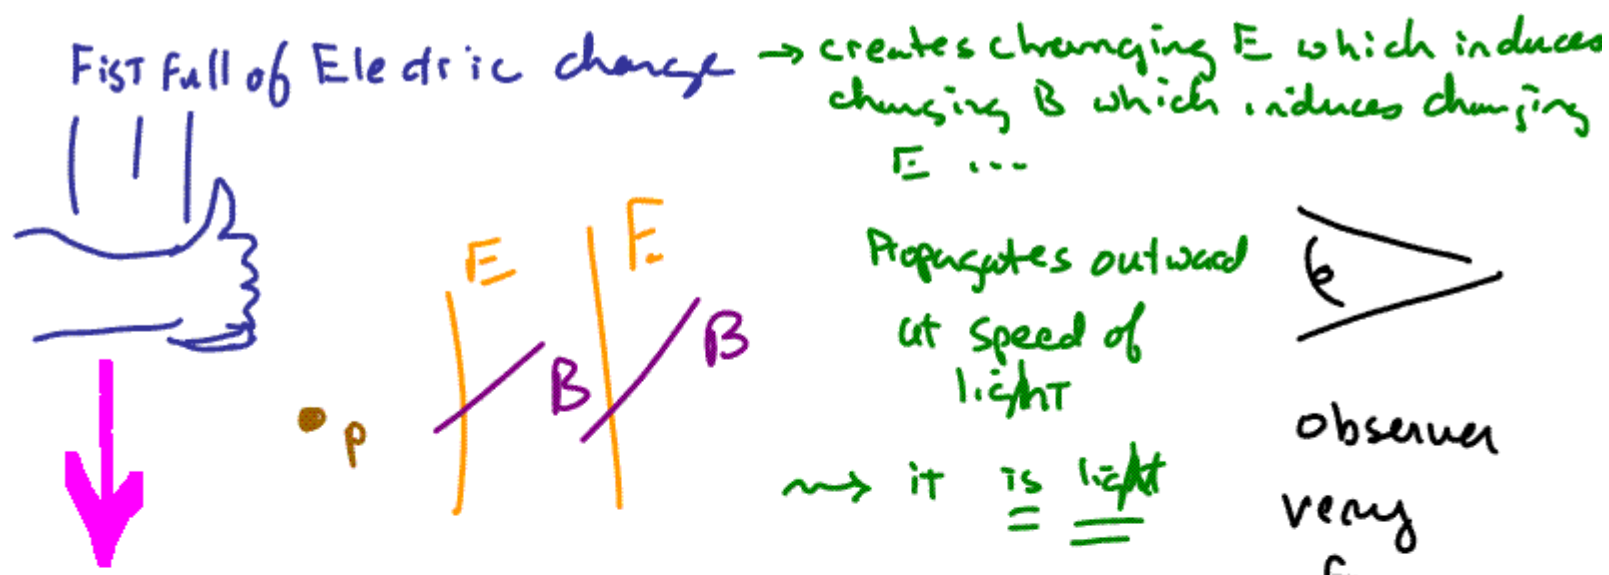 Fist full of Electric charge → creates changing E which induces
changing B which induces changing
E ...
E
E
B
B
p
Propagates outward
at speed of
light
⇝ it is light
observer
very